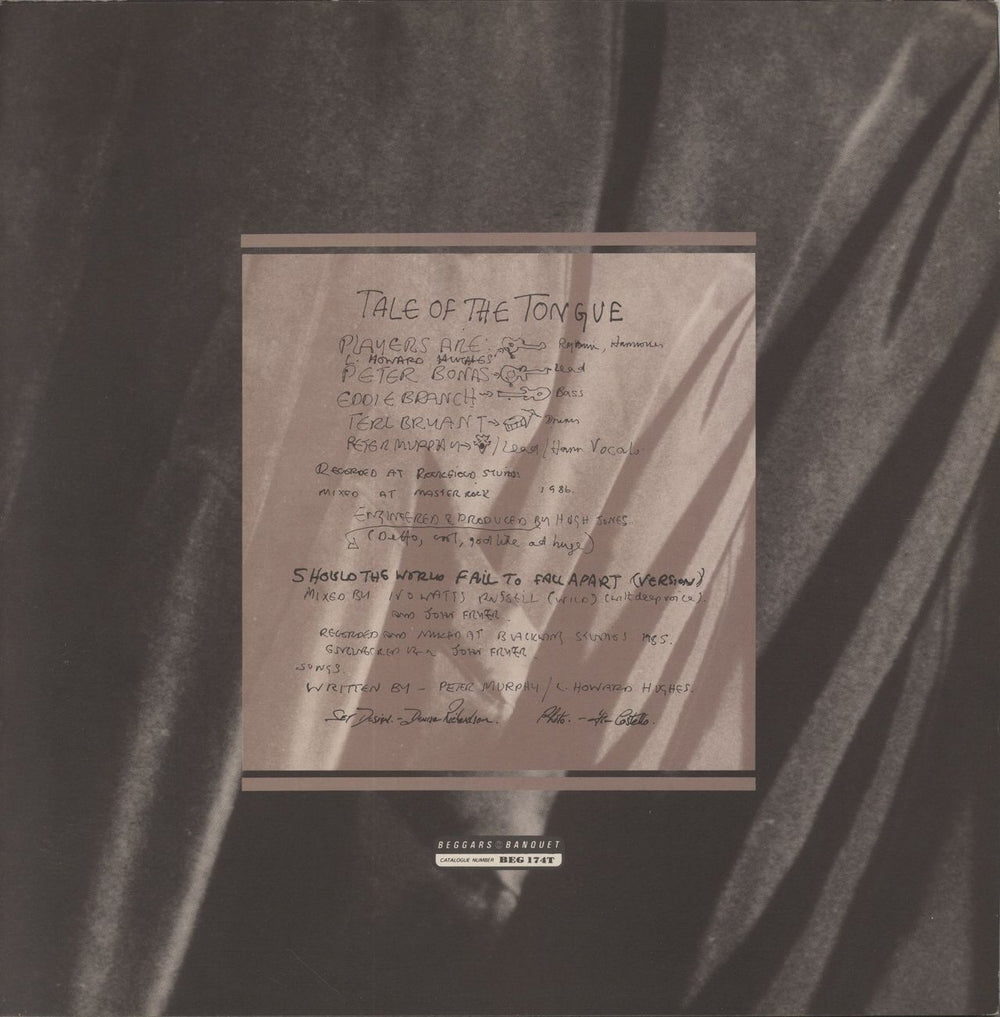 TALE OF THE TONGUE
PLAYERS ARE: Rhythm, Harmonies
L. HOWARD HUGHES
PETER BONAS → Lead
EDDIE BRANCH → Bass
TERL BRYANT → Drums
PETER MURPHY → / Lead / Harm Vocals
RECORDED AT ROCKFIELD STUDIOS
MIXED AT MASTER ROCK 1986.
ENGINEERED & PRODUCED BY HUGH JONES
(Deffo, cool, godlike and huge)
SHOULD THE WORLD FAIL TO FALL APART (VERSION)
MIXED BY IVO WATTS RUSSELL (WILD) (with deep voice).
AND JOHN FRYER.
RECORDED AND MIXED AT BLACKWING STUDIOS 1985.
ENGINEERED BY JOHN FRYER
SONGS.
WRITTEN BY - PETER MURPHY / L. HOWARD HUGHES.
Set Design. - Richardson. Photo. - Costello.
BEGGARS BANQUET
CATALOGUE NUMBER BEG 174T